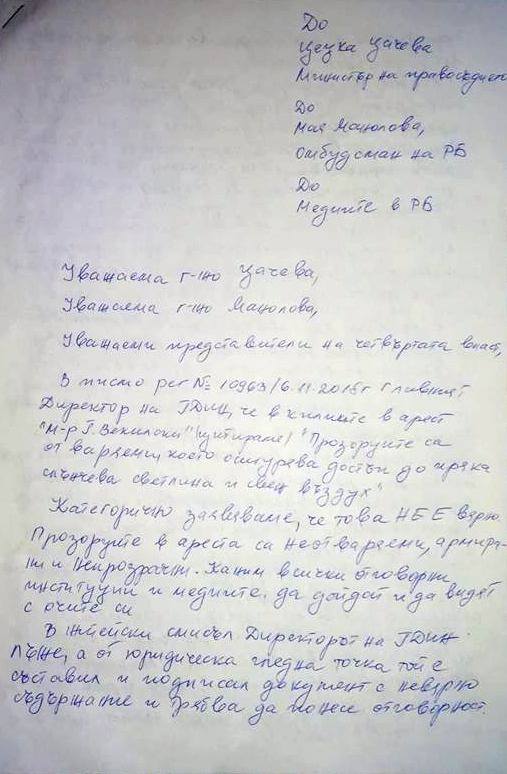 До
Цецка Цачева
Министър на правосъдието
До
Мая Манолова,
омбудсман на РБ
До
Медиите в РБ
Уважаема г-жо Цачева,
Уважаема г-жо Манолова,
Уважаеми представители на четвъртата власт,
В писмо рег № 10963/6.11.2018г Главният
Директор на ГДИН, че в килиите в арест
"М-р Г. Векилски" /цитираме/ "Прозорците са
отваряеми, което осигурява достъп до пряка
слънчева светлина и свеж въздух"
Категорично заявяваме, че това НЕ Е вярно.
Прозорците в ареста са неотваряеми, армира-
ни и непрозрачни. Каним всички отговорни
институции и медиите да дойдат и да видят
с очите си
В житейски смисъл Директорът на ГДИН
лъже, а от юридическа гледна точка той е
съставил и подписал документ с невярно
съдържание и трябва да понесе отговорност.